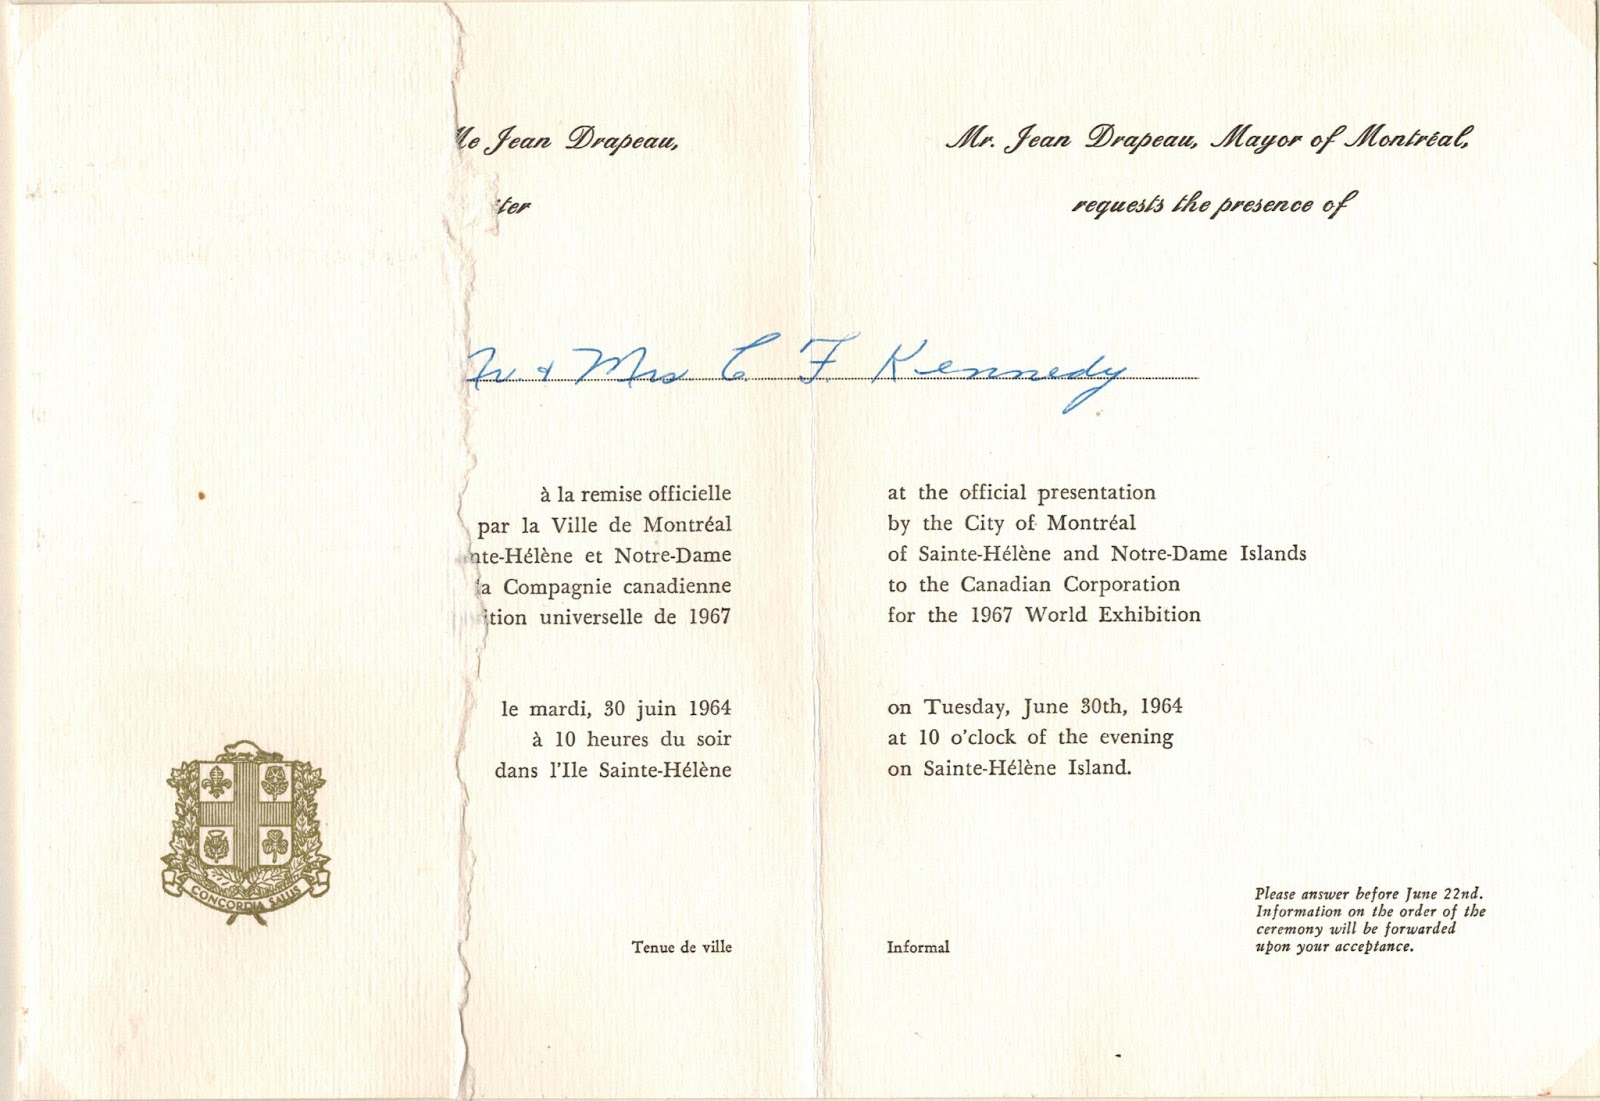 Me Jean Drapeau,
Mr. Jean Drapeau, Mayor of Montréal,
requests the presence of
& Mrs C F Kennedy
à la remise officielle
par la Ville de Montréal
nte-Hélène et Notre-Dame
la Compagnie canadienne
ition universelle de 1967
le mardi, 30 juin 1964
à 10 heures du soir
dans l'Ile Sainte-Hélène
Tenue de ville
at the official presentation
by the City of Montréal
of Sainte-Hélène and Notre-Dame Islands
to the Canadian Corporation
for the 1967 World Exhibition
on Tuesday, June 30th, 1964
at 10 o'clock of the evening
on Sainte-Hélène Island.
Informal
Please answer before June 22nd.
Information on the order of the
ceremony will be forwarded
upon your acceptance.
CONCORDIA SALUS